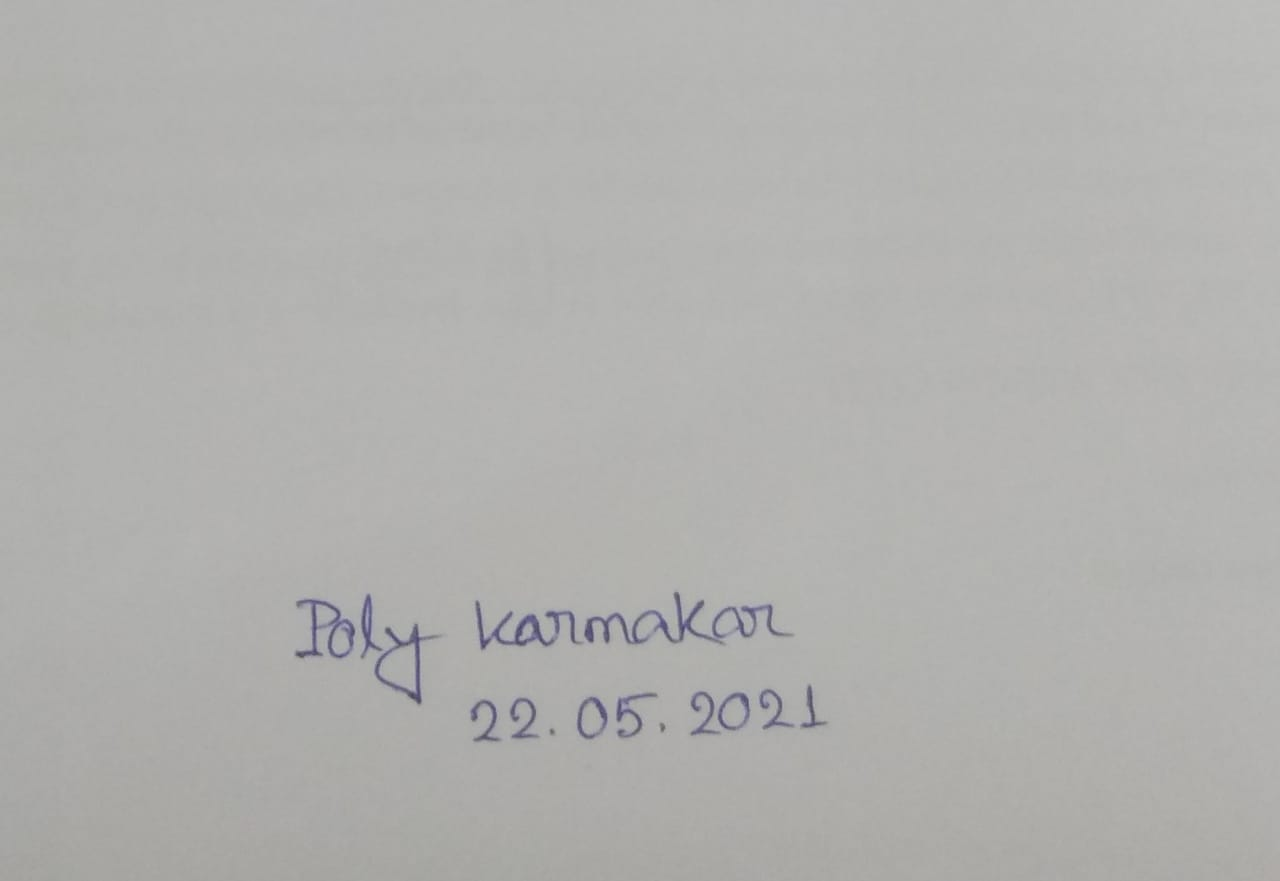 Poly Karmakar
22.05.2021